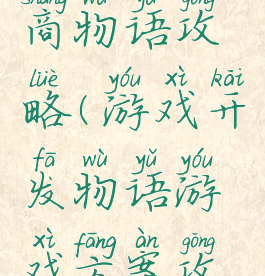 shāng wù yǔ gōng
商物语攻
lüè yóu xì kāi
略(游戏开
fā wù yǔ yóu
发物语游
xì fāng àn gōng
戏方案攻